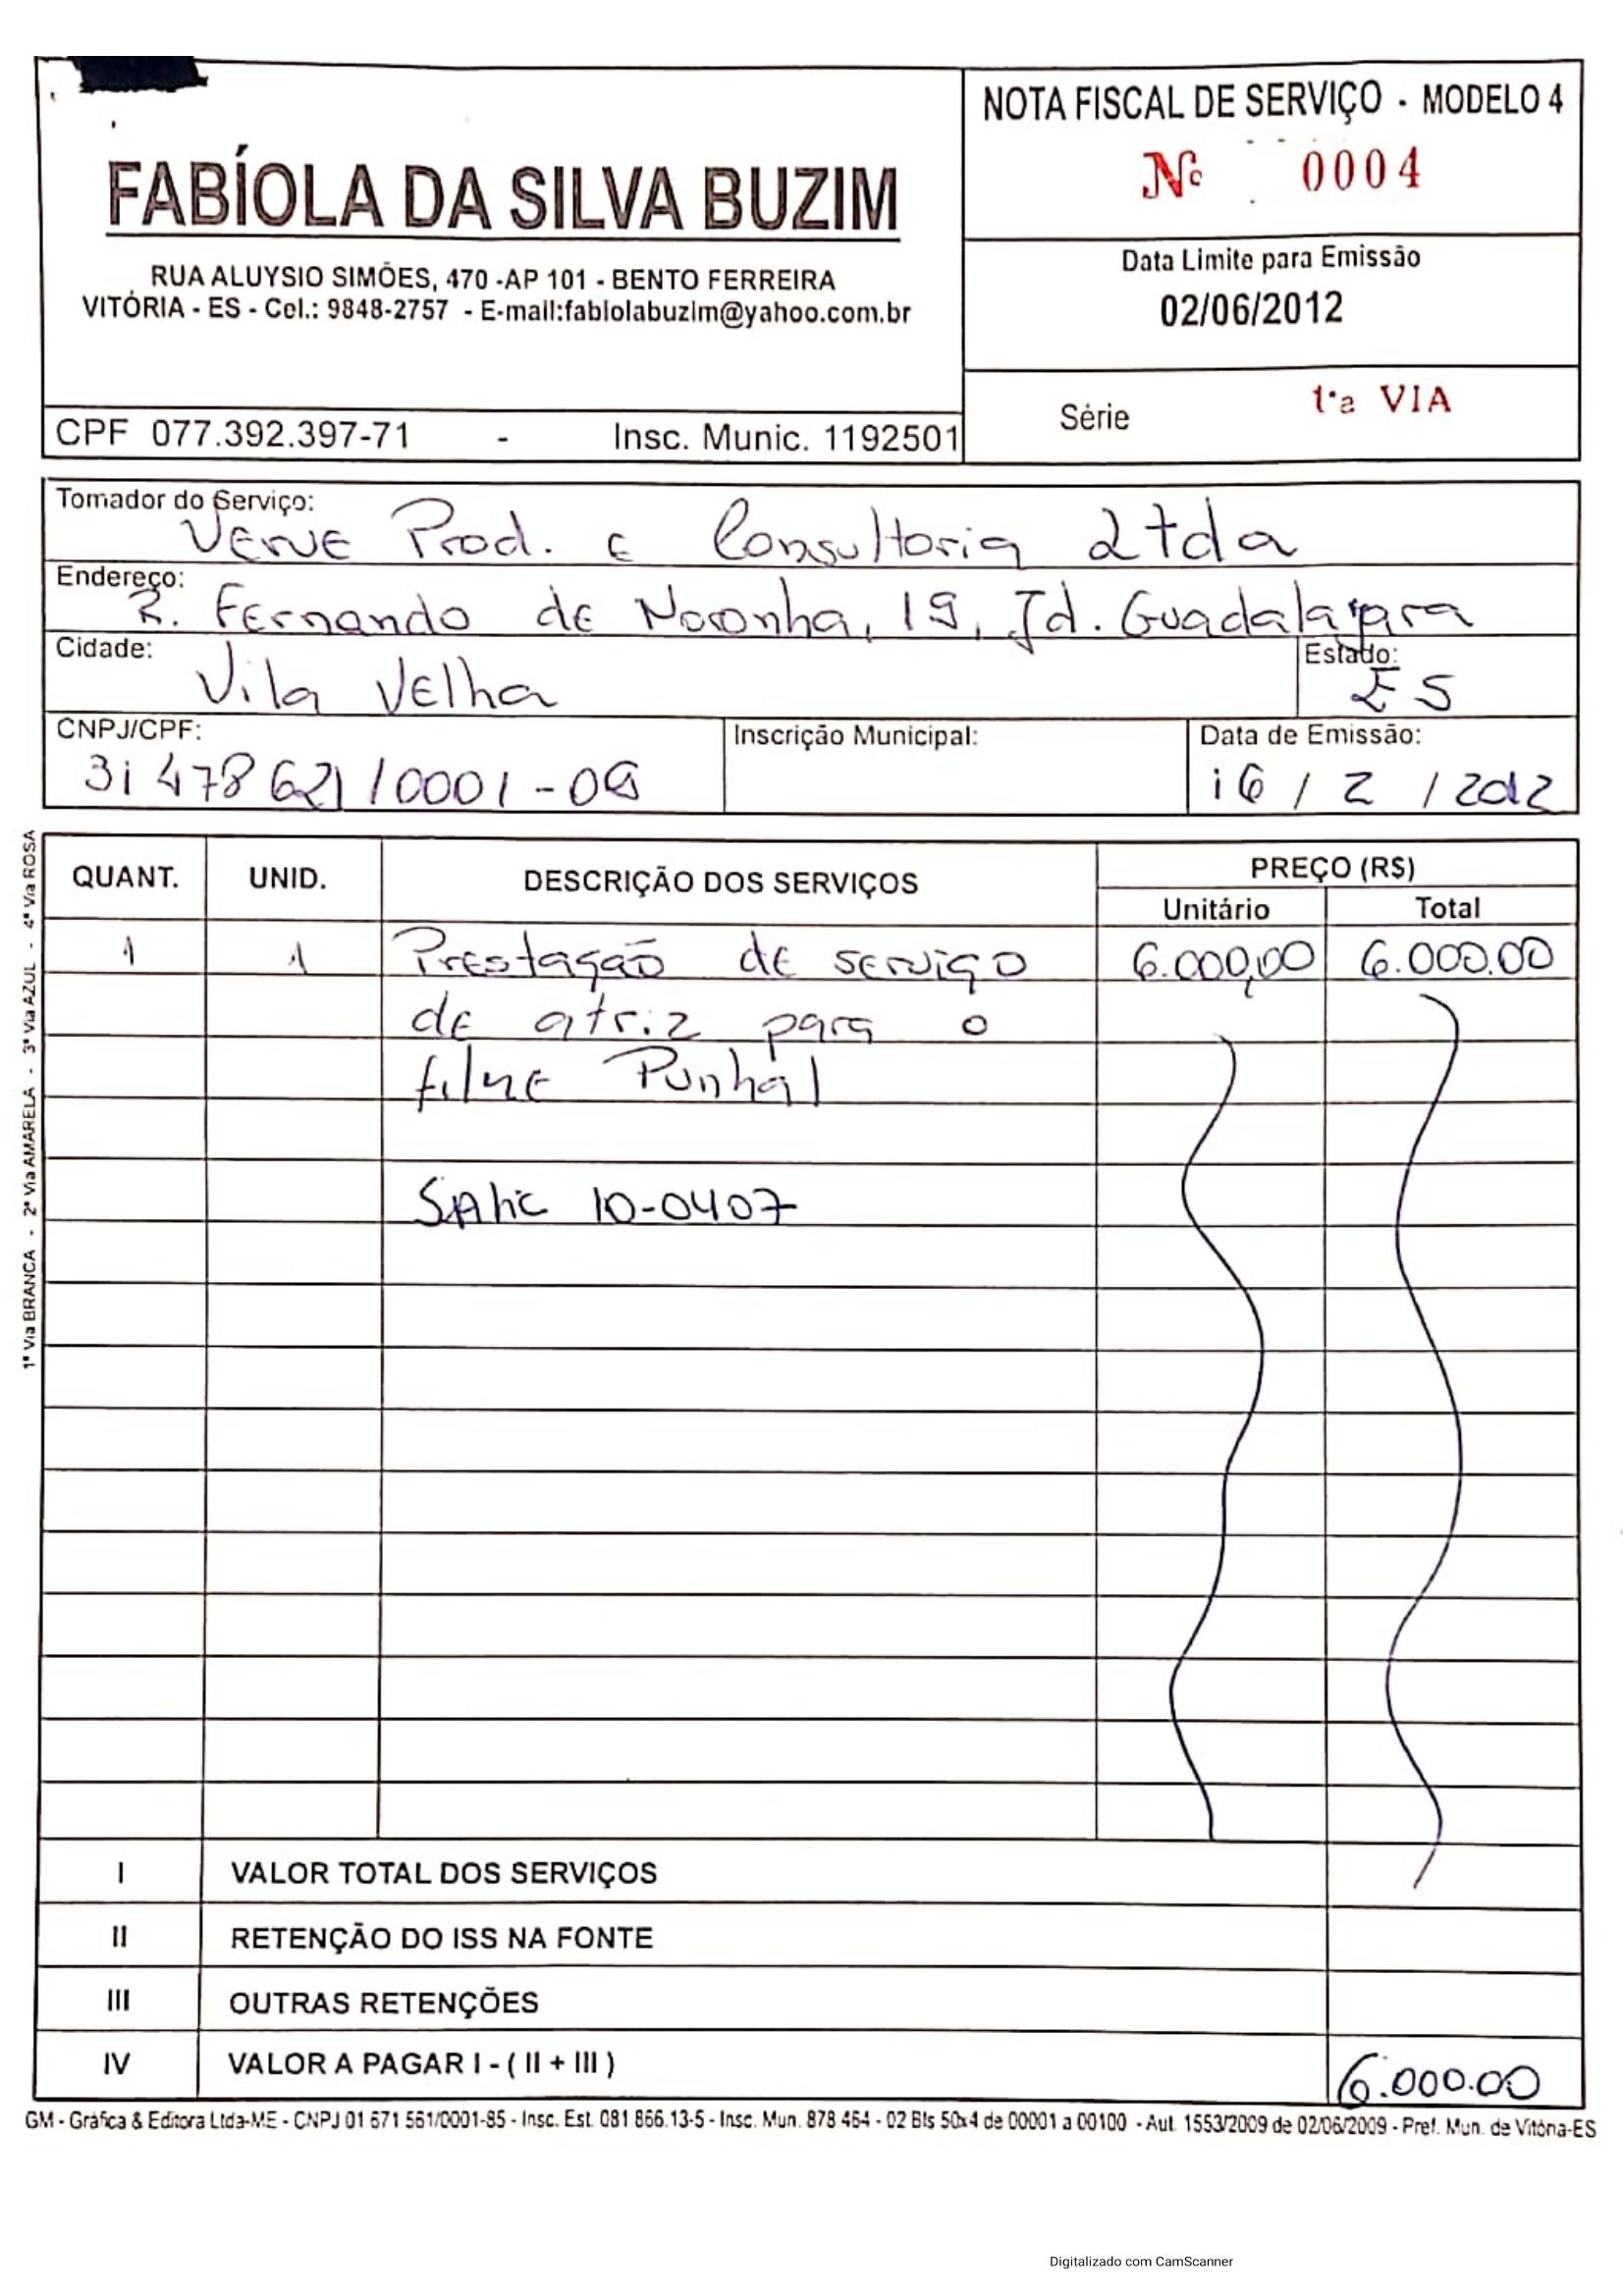 FABÍOLA DA SILVA BUZIM
RUA ALUYSIO SIMÕES, 470 -AP 101 - BENTO FERREIRA
VITÓRIA - ES - Cel.: 9848-2757 - E-mail:fabiolabuzim@yahoo.com.br
CPF 077.392.397-71 - Insc. Munic. 1192501
NOTA FISCAL DE SERVIÇO - MODELO 4
Nº 0004
Data Limite para Emissão
02/06/2012
Série 1ª VIA
Tomador do Serviço: Verve Prod. e Consultoria Ltda
Endereço: R. Fernando de Noronha, 19, Jd. Guadalajara
Cidade: Vila Velha Estado: ES
CNPJ/CPF: Inscrição Municipal: Data de Emissão:
31478621/0001-09 16 / 2 / 2012
QUANT. UNID. DESCRIÇÃO DOS SERVIÇOS PREÇO (R$)
Unitário Total
1 1 Prestação de serviço 6.000,00 6.000.00
de atriz para o
filme Punhal
Salic 10-0407
I VALOR TOTAL DOS SERVIÇOS
II RETENÇÃO DO ISS NA FONTE
III OUTRAS RETENÇÕES
IV VALOR A PAGAR I - ( II + III ) 6.000.00
1ª Via BRANCA - 2ª Via AMARELA - 3ª Via AZUL - 4ª Via ROSA
GM - Gráfica & Editora Ltda-ME - CNPJ 01 671 561/0001-85 - Insc. Est. 081 866.13-5 - Insc. Mun. 878 464 - 02 Bls 50x4 de 00001 a 00100 - Aut. 1553/2009 de 02/06/2009 - Pref. Mun. de Vitória-ES
Digitalizado com CamScanner